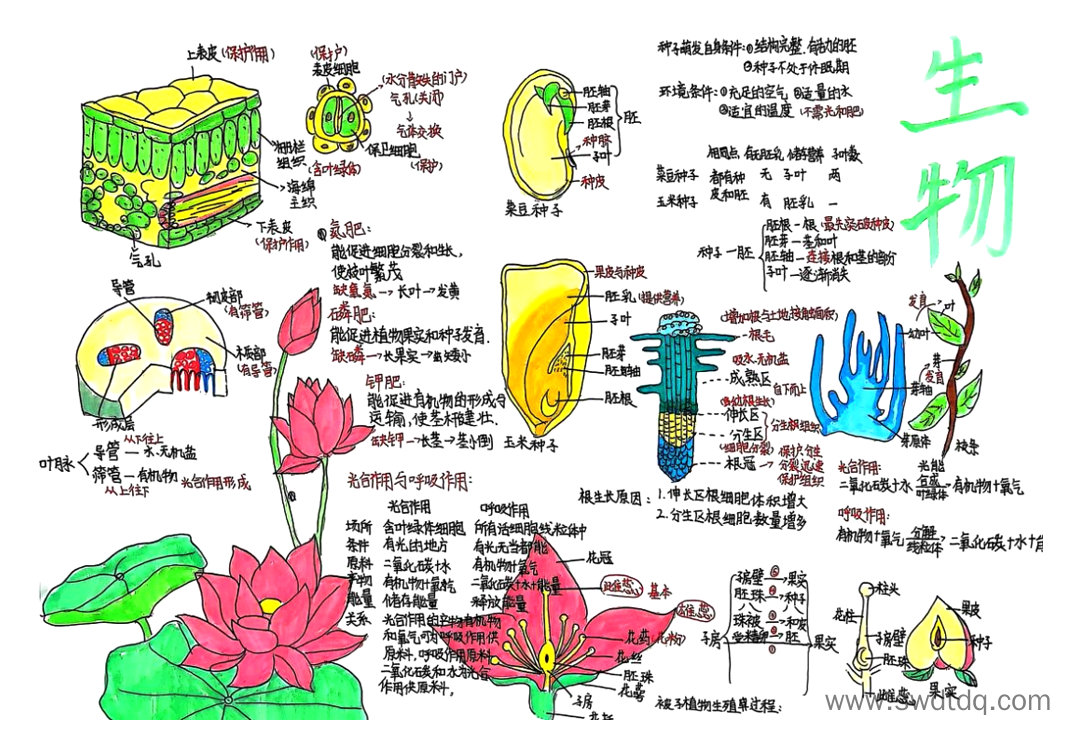 生物
上表皮(保护作用)
(保护)
表皮细胞
(水分散失的门户)
气孔(关闭)
气体交换
保卫细胞
(保护)
栅栏
组织
(含叶绿体)
海绵
组织
下表皮
(保护作用)
气孔
胚轴
胚芽
胚根
胚
种脐
子叶
种皮
菜豆种子
种子萌发自身条件:①结构完整.有活力的胚
②种子不处于休眠期
环境条件:①充足的空气 ②适量的水
③适宜的温度 (不需光和肥)
相同点 有无胚乳 储存营养 子叶数
菜豆种子 都有种 无 子叶 两
玉米种子 皮和胚 有 胚乳 一
种子—胚
胚根—根(最先突破种皮)
胚芽—茎和叶
胚轴—连接根和茎的部分
子叶—逐渐消失
氮肥:
能促进细胞分裂和生长,
使枝叶繁茂
缺氮→长叶→发黄
磷肥:
能促进植物果实和种子发育.
缺磷→长果实→
钾肥:
能促进有机物的形成与
运输,使茎秆健壮.
缺钾→长茎→茎小倒
导管
韧皮部
(有筛管)
木质部
(有导管)
形成层
叶脉
从下往上
导管—水.无机盐
筛管—有机物 光合作用形成
从上往下
果皮与种皮
胚乳(提供营养)
子叶
胚芽
胚轴
胚根
玉米种子
(增加根与土地接触面积)
根毛
吸水.无机盐
成熟区
自下而上
伸长区
分生区
(细胞分裂)
根冠
保护分生
保护组织
分生组织
根生长原因:1.伸长区根细胞体积增大
2.分生区根细胞数量增多
发育
叶
幼叶
芽
发育
芽轴
芽原体
枝条
光合作用:
二氧化碳+水 光能 叶绿体 有机物+氧气
呼吸作用:
有机物+氧气 分解 线粒体 二氧化碳+水+能
光合作用与呼吸作用:
光合作用 呼吸作用
场所 含叶绿体细胞 所有活细胞线粒体中
条件 有光的地方 有光无光都能
原料 二氧化碳+水 有机物+氧气
产物 有机物+氧气 二氧化碳+水+能量
能量 储存能量 释放能量
关系 光合作用的产物有机物
和氧气可为呼吸作用供
原料,呼吸作用原料
二氧化碳和水为光合
作用供原料,
花冠
雌蕊
基本
雄蕊
花药(花粉)
花丝
胚珠
花萼
子房
花托
子房
子房壁→果皮
胚珠→种子
珠被→种皮
受精卵→胚
果实
被子植物生殖过程:
柱头
花柱
子房壁
胚珠
雌蕊
果皮
种子
果实
www.swdtdq.com